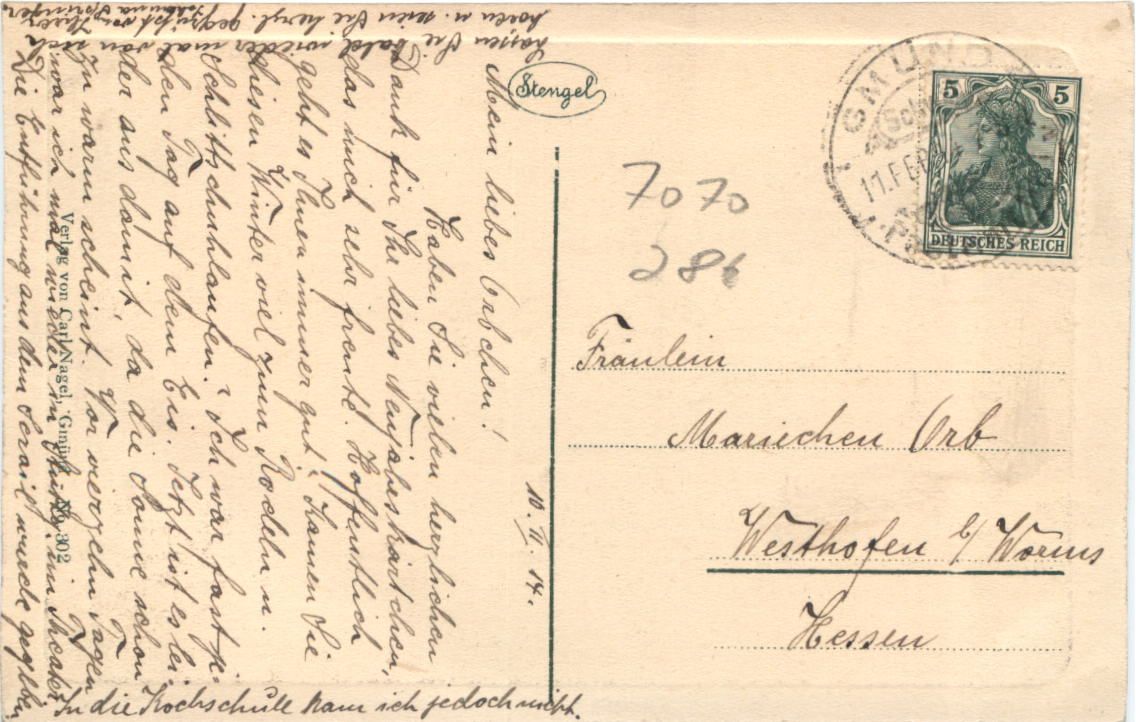 Stengel
Mein liebes Orbchen!
Haben Sie vielen herzlichen
Dank für Ihr liebes Neujahrskärtchen,
das mich sehr freute. Hoffentlich
geht es Ihnen immer gut. Kamen Sie
diesen Winter viel zum Rodeln u.
Schlittschuhlaufen? Ich war fast je-
den Tag auf dem Eis. Jetzt ist es lei-
der aus damit, da die Sonne schon
zu warm scheint. Vor vierzehn Tagen
war ich mal wieder in im Theater,
Die Entführung aus dem Serail wurde gegeben.
In die Kochschule kam ich jedoch nicht.
Lassen Sie bald wieder mal von sich
hören u. seien Sie herzl. gegrüßt von Ihrer
Springer
10. II. 14.
Verlag von Carl Nagel, Gmünd No. 302
7070
286
GMÜND
11. FEB
5 5
DEUTSCHES REICH
Fräulein
Mariechen Orb
Westhofen b/ Worms
Hessen